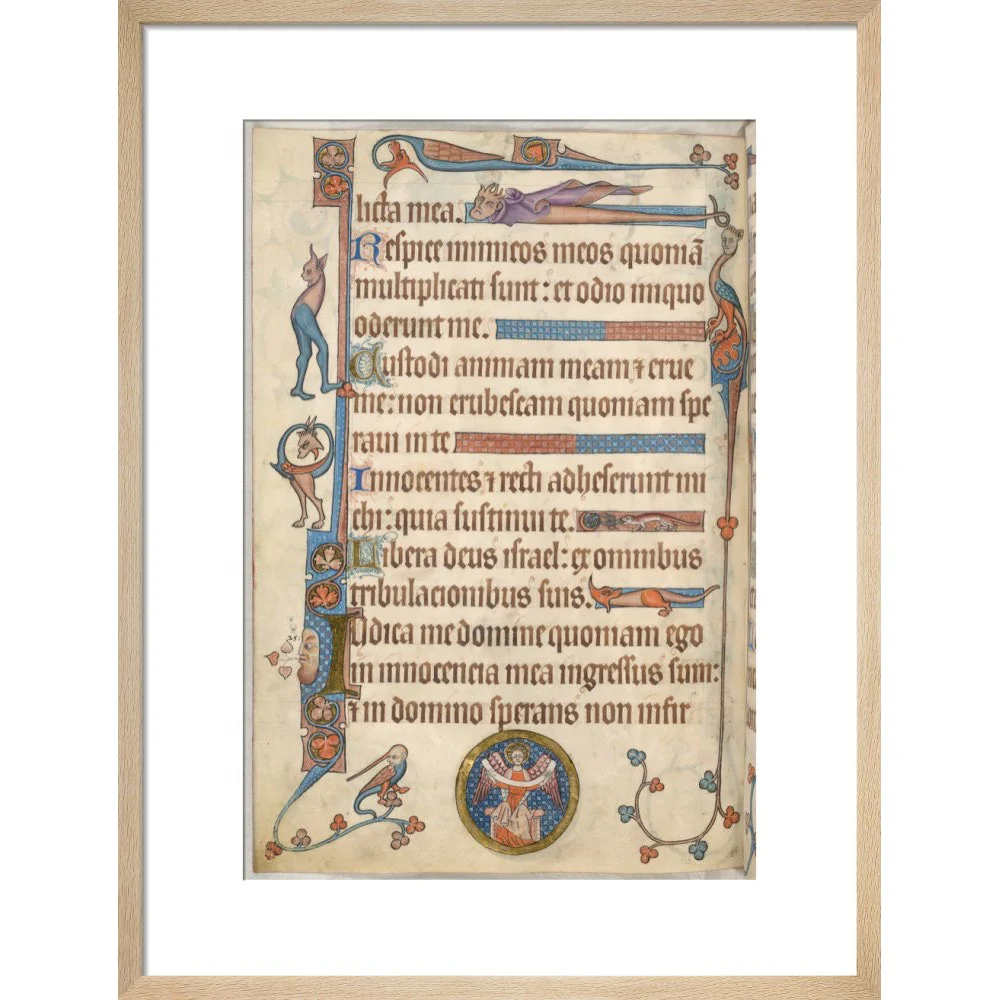 licta mea.
Respice inimicos meos quoniā
multiplicati sunt : et odio iniquo
oderunt me.
Custodi animam meam ⁊ erue
me : non erubescam quoniam spe
raui in te
Innocentes ⁊ recti adheserunt mi
chi : quia sustinui te.
Libera deus israel : ex omnibus
tribulacionibus suis.
25:
Iudica me domine quoniam ego
in innocencia mea ingressus sum :
⁊ in domino sperans non infir